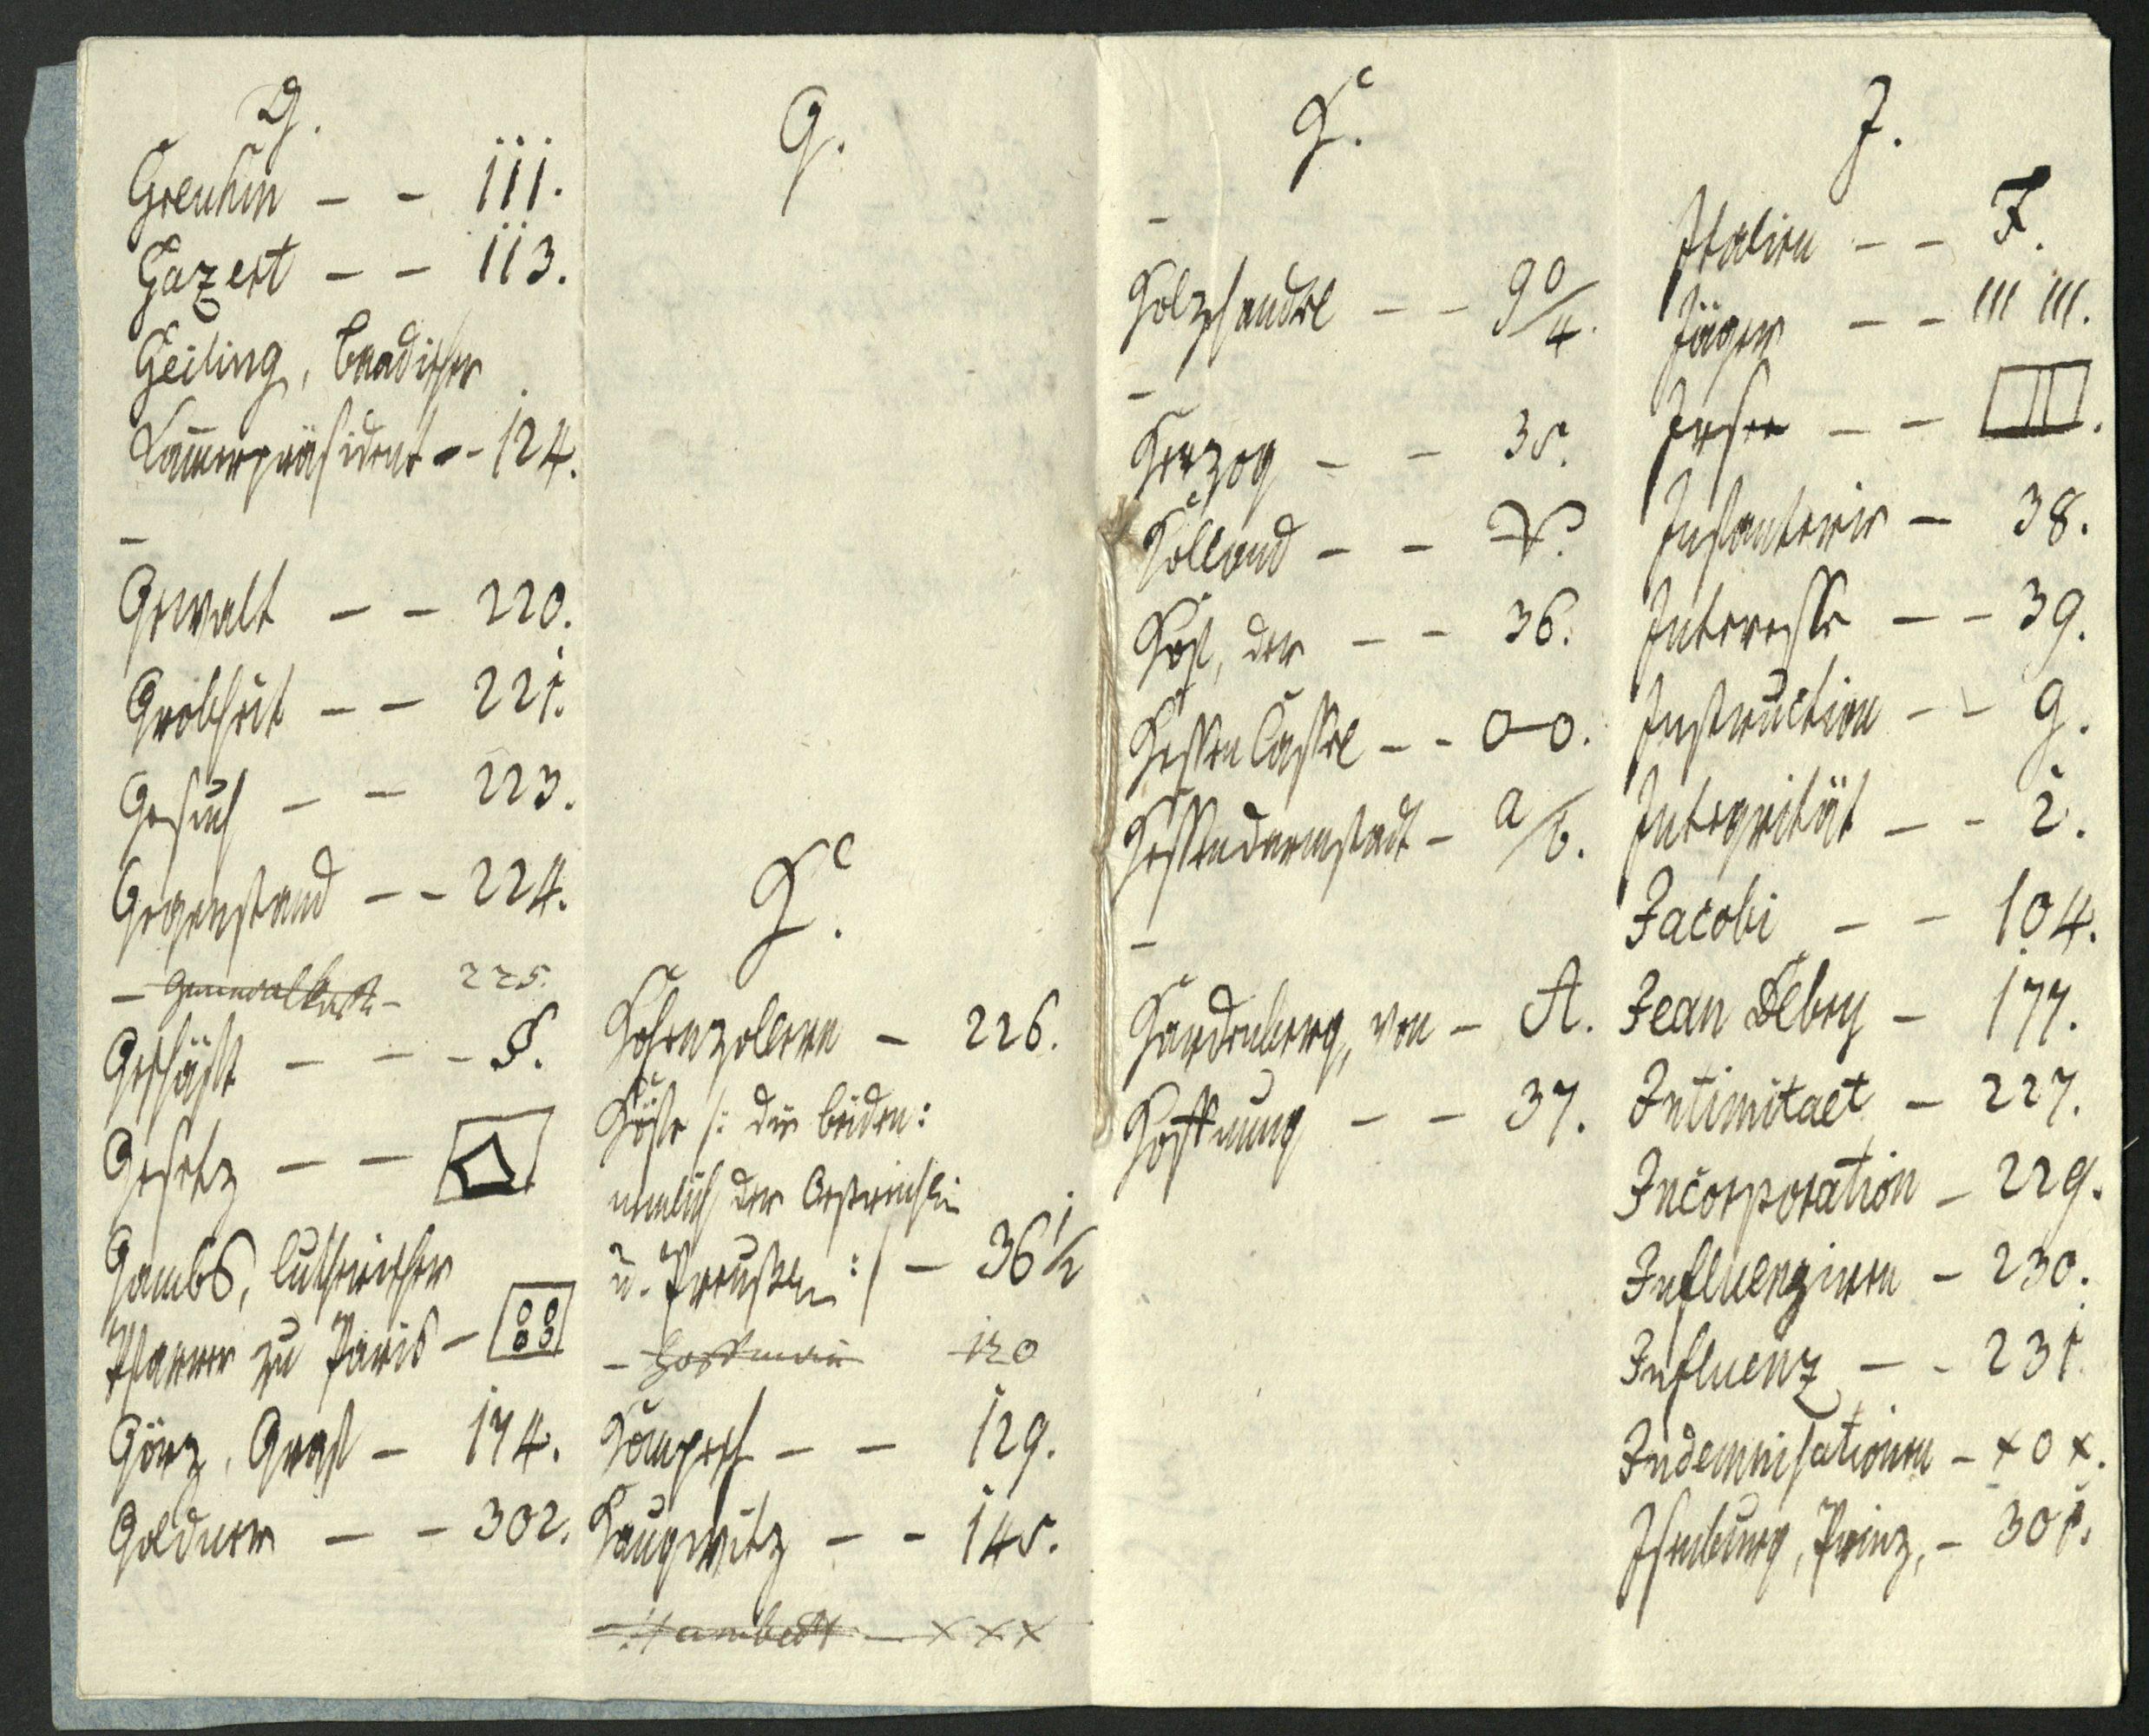 G.
Greuhm – – 111.
Gazert – – 113.
Geiling, baadischer
Kammerpräsident – – 124.
–
Gewalt – – 220.
Grobheit – – 221.
Gesuch – – 223.
Gegenstand – – 224.
– 225.
Geschäft – – – §.
Gesetz – –
Gambs, lutherischer
Pfarrer zu Paris –
Görz, Graf – 174.
Goldner – – 302.
G.
H.
Hohenzollern – 226.
Höfe /: die beiden:
nemlich der Oestreichsche
u. Preußische :/ – 36 1/2
– Hoffmann 120
Hompesch – – 129.
Haugwitz – – 145.
– Humboldt – x x x
H.
–
Holzhandel – – 90/4.
–
Herzog – – 35.
Holland – –
Hof, der – – 36.
Hessen Cassel – – 0–0.
Hessendarmstadt – a/b.
–
Hardenberg, von – A.
Hoffnung – – 37.
J.
Italien – – F.
Jäger – – III III.
– –
Infanterie – 38.
Interesse – – 39.
Instruction – – g.
Integrität – – 2.
Jacobi – – 104.
Jean Debry – 177.
Intimitaet – 227.
Incorporation – 229.
Influenziren – 230.
Influenz – – 231.
Indemnisationen – x 0 x.
Isenburg, Prinz, – 301.